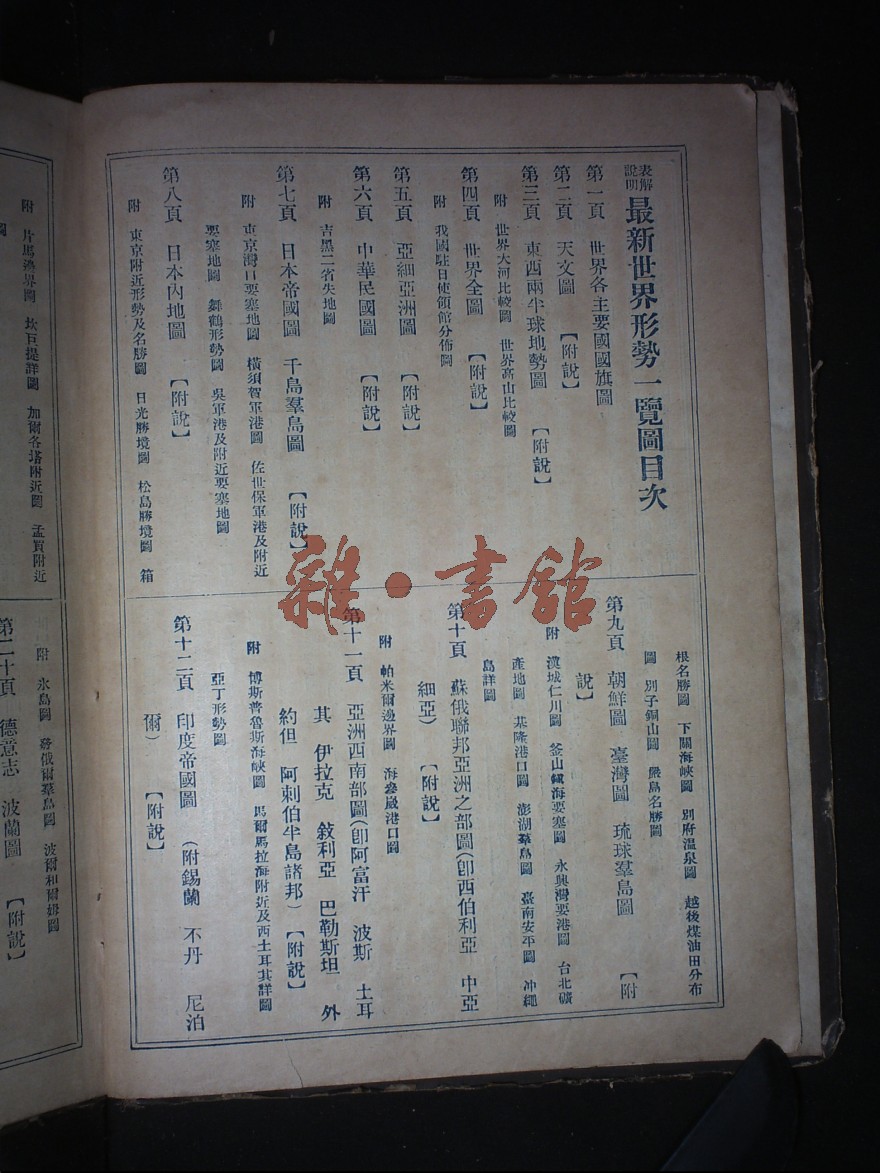 表解說明 最新世界形勢一覽圖目次
第一頁 世界各主要國國旗圖
第二頁 天文圖 【附說】
第三頁 東西兩半球地勢圖 【附說】
附 世界大河比較圖 世界高山比較圖
第四頁 世界全圖 【附說】
附 我國駐日使領館分佈圖
第五頁 亞細亞洲圖 【附說】
第六頁 中華民國圖 【附說】
附 吉黑二省失地圖
第七頁 日本帝國圖 千島羣島圖 【附說】
附 東京灣口要塞地圖 橫須賀軍港圖 佐世保軍港及附近
要塞地圖 舞鶴形勢圖 吳軍港及附近要塞地圖
第八頁 日本內地圖 【附說】
附 東京附近形勢及名勝圖 日光勝境圖 松島勝境圖 箱
根名勝圖 下關海峽圖 別府溫泉圖 越後煤油田分布
圖 別子銅山圖 嚴島名勝圖
第九頁 朝鮮圖 臺灣圖 琉球羣島圖 【附
說】
附 漢城仁川圖 釜山鎮海要塞圖 永興灣要港圖 台北礦
產地圖 基隆港口圖 澎湖羣島圖 臺南安平圖 冲繩
島詳圖
第十頁 蘇俄聯邦亞洲之部圖(卽西伯利亞 中亞
細亞) 【附說】
附 帕米爾邊界圖 海參崴港口圖
第十一頁 亞洲西南部圖(卽阿富汗 波斯 土耳
其 伊拉克 敍利亞 巴勒斯坦 外
約但 阿剌伯半島諸邦) 【附說】
附 博斯普魯斯海峽圖 馬爾馬拉海附近及西土耳其詳圖
亞丁形勢圖
第十二頁 印度帝國圖 (附錫蘭 不丹 尼泊
爾) 【附說】
附 片馬邊界圖 坎巨提詳圖 加爾各塔附近圖 孟買附近
圖
附 氷島圖 發俄爾羣島圖 波爾和爾姆圖
第二十頁 德意志 波蘭圖 【附說】
雜·書館